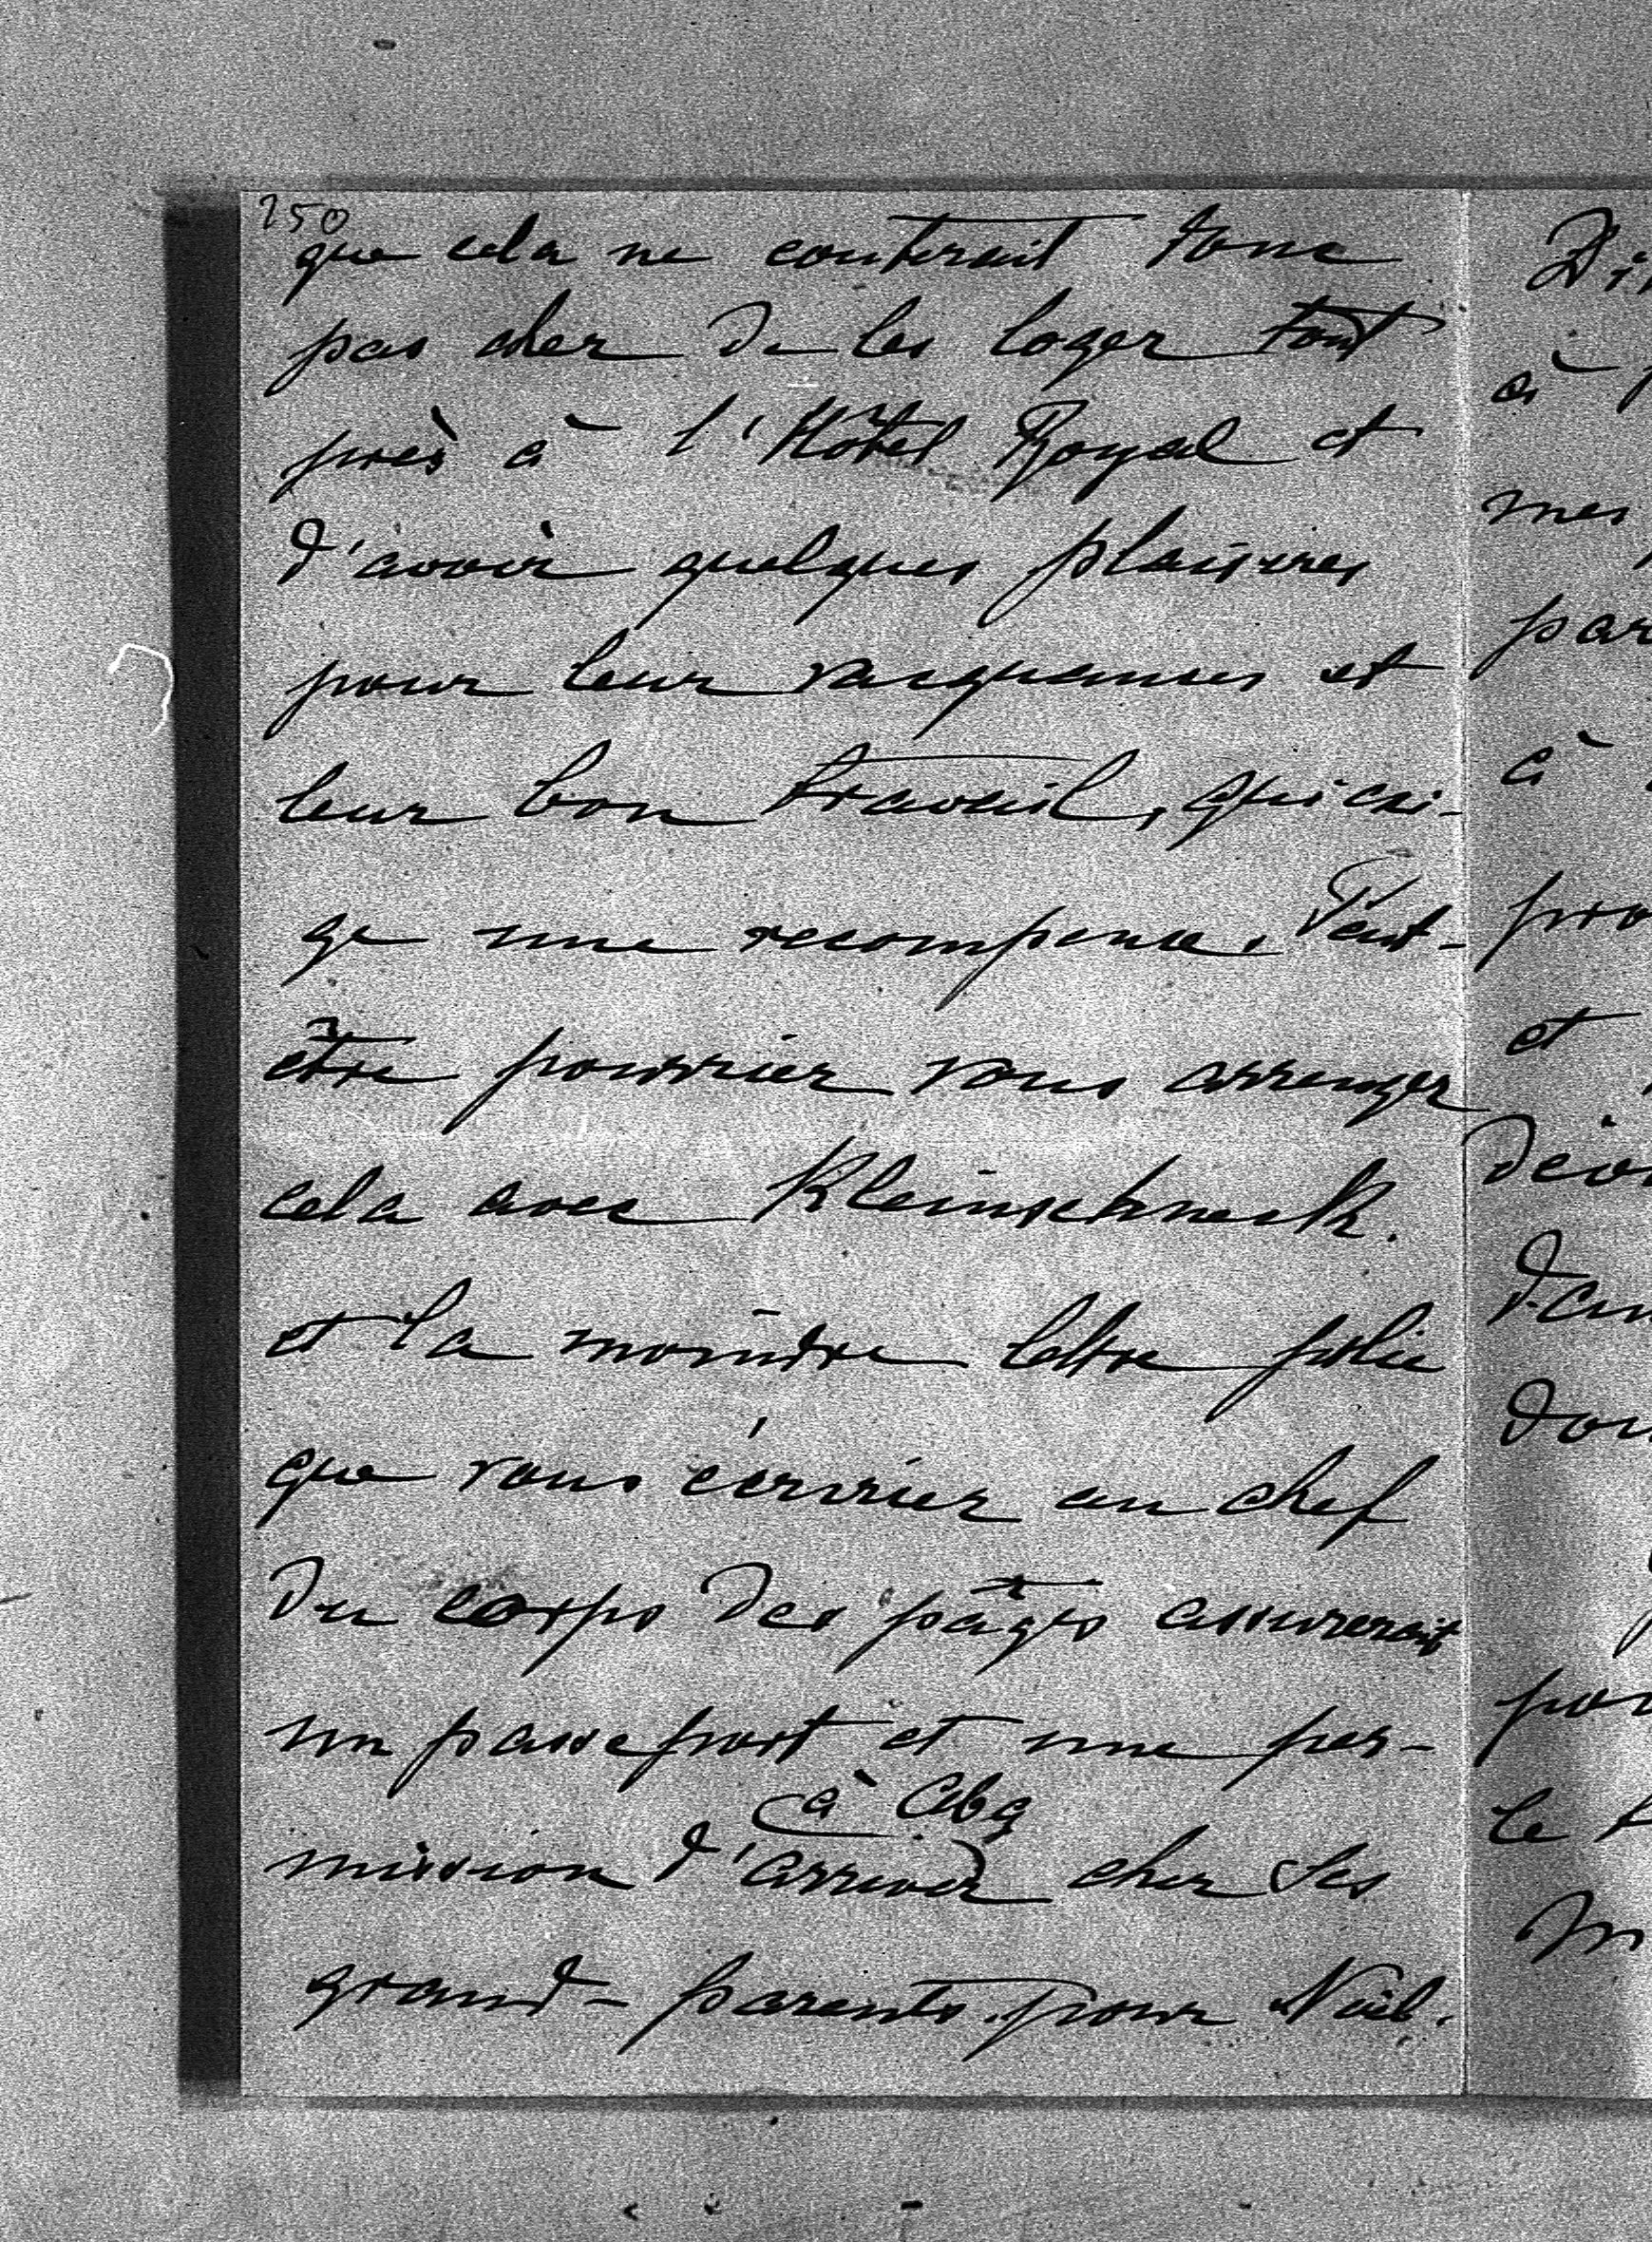 250
que cela ne couterait donc
pas cher de les loger tout
près à l'Hôtel Royal et
d'avoir quelques plaisires
pour leur vacquances et
leur bon travail, qui exi-
ge une recompense. Peut-
être pourriez vous arranger
cela avec
et la moindre lettre polie
que vous écrivier au chef
du corps des pâges assurerait
un passeport et une per-
à Cbg
mission d'arriver chez ses
grand-parents pour Noël.
Di
à
mes
par
à
pro
et
dev
dan
don
pou
le
M